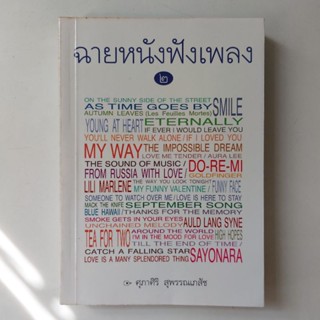 ฉายหนังฟังเพลง
๒
ON THE SUNNY SIDE OF THE STREET
AS TIME GOES BY
SMILE
AUTUMN LEAVES (Les Feuilles Mortes)
YOUNG AT HEART
ETERNALLY
IF EVER I WOULD LEAVE YOU
YOU'LL NEVER WALK ALONE / IF I LOVED YOU
MY WAY
THE IMPOSSIBLE DREAM
LOVE ME TENDER / AURA LEE
THE SOUND OF MUSIC /
DO-RE-MI
FROM RUSSIA WITH LOVE /
GOLDFINGER
LILI MARLENE
THE WAY YOU LOOK TONIGHT
MY FUNNY VALENTINE /
FUNNY FACE
SOMEONE TO WATCH OVER ME / LOVE IS HERE TO STAY
MACK THE KNIFE
SEPTEMBER SONG
BLUE HAWAII /
THANKS FOR THE MEMORY
SMOKE GETS IN YOUR EYES
AULD LANG SYNE
UNCHAINED MELODY
TEA FOR TWO
AROUND THE WORLD
HIGH HOPES
I'M IN THE MOOD FOR LOVE
TILL THE END OF TIME /
CATCH A FALLING STAR
SAYONARA
LOVE IS A MANY SPLENDORED THING
ศุภาศิริ สุพรรณเภสัช